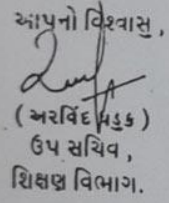 આપનો વિશ્વાસુ,
(અરવિંદ પડુક)
ઉપ સચિવ,
શિક્ષણ વિભાગ.